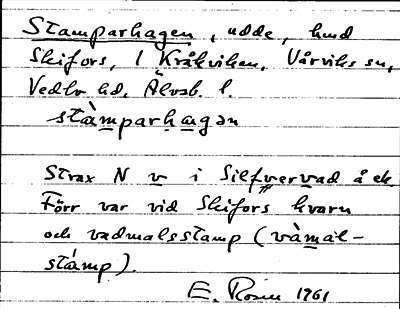 Stamparhagen, udde, hmd
Skifors, l Kråkviken, Vårviks sn,
Vedbo hd, Älvsb. l.
stàmparhagən
Strax N v i Silfververvad å ek.
Förr var vid Skifors kvarn
och vadmalsstamp (vàmal-
stámp).
E. Rosin 1961